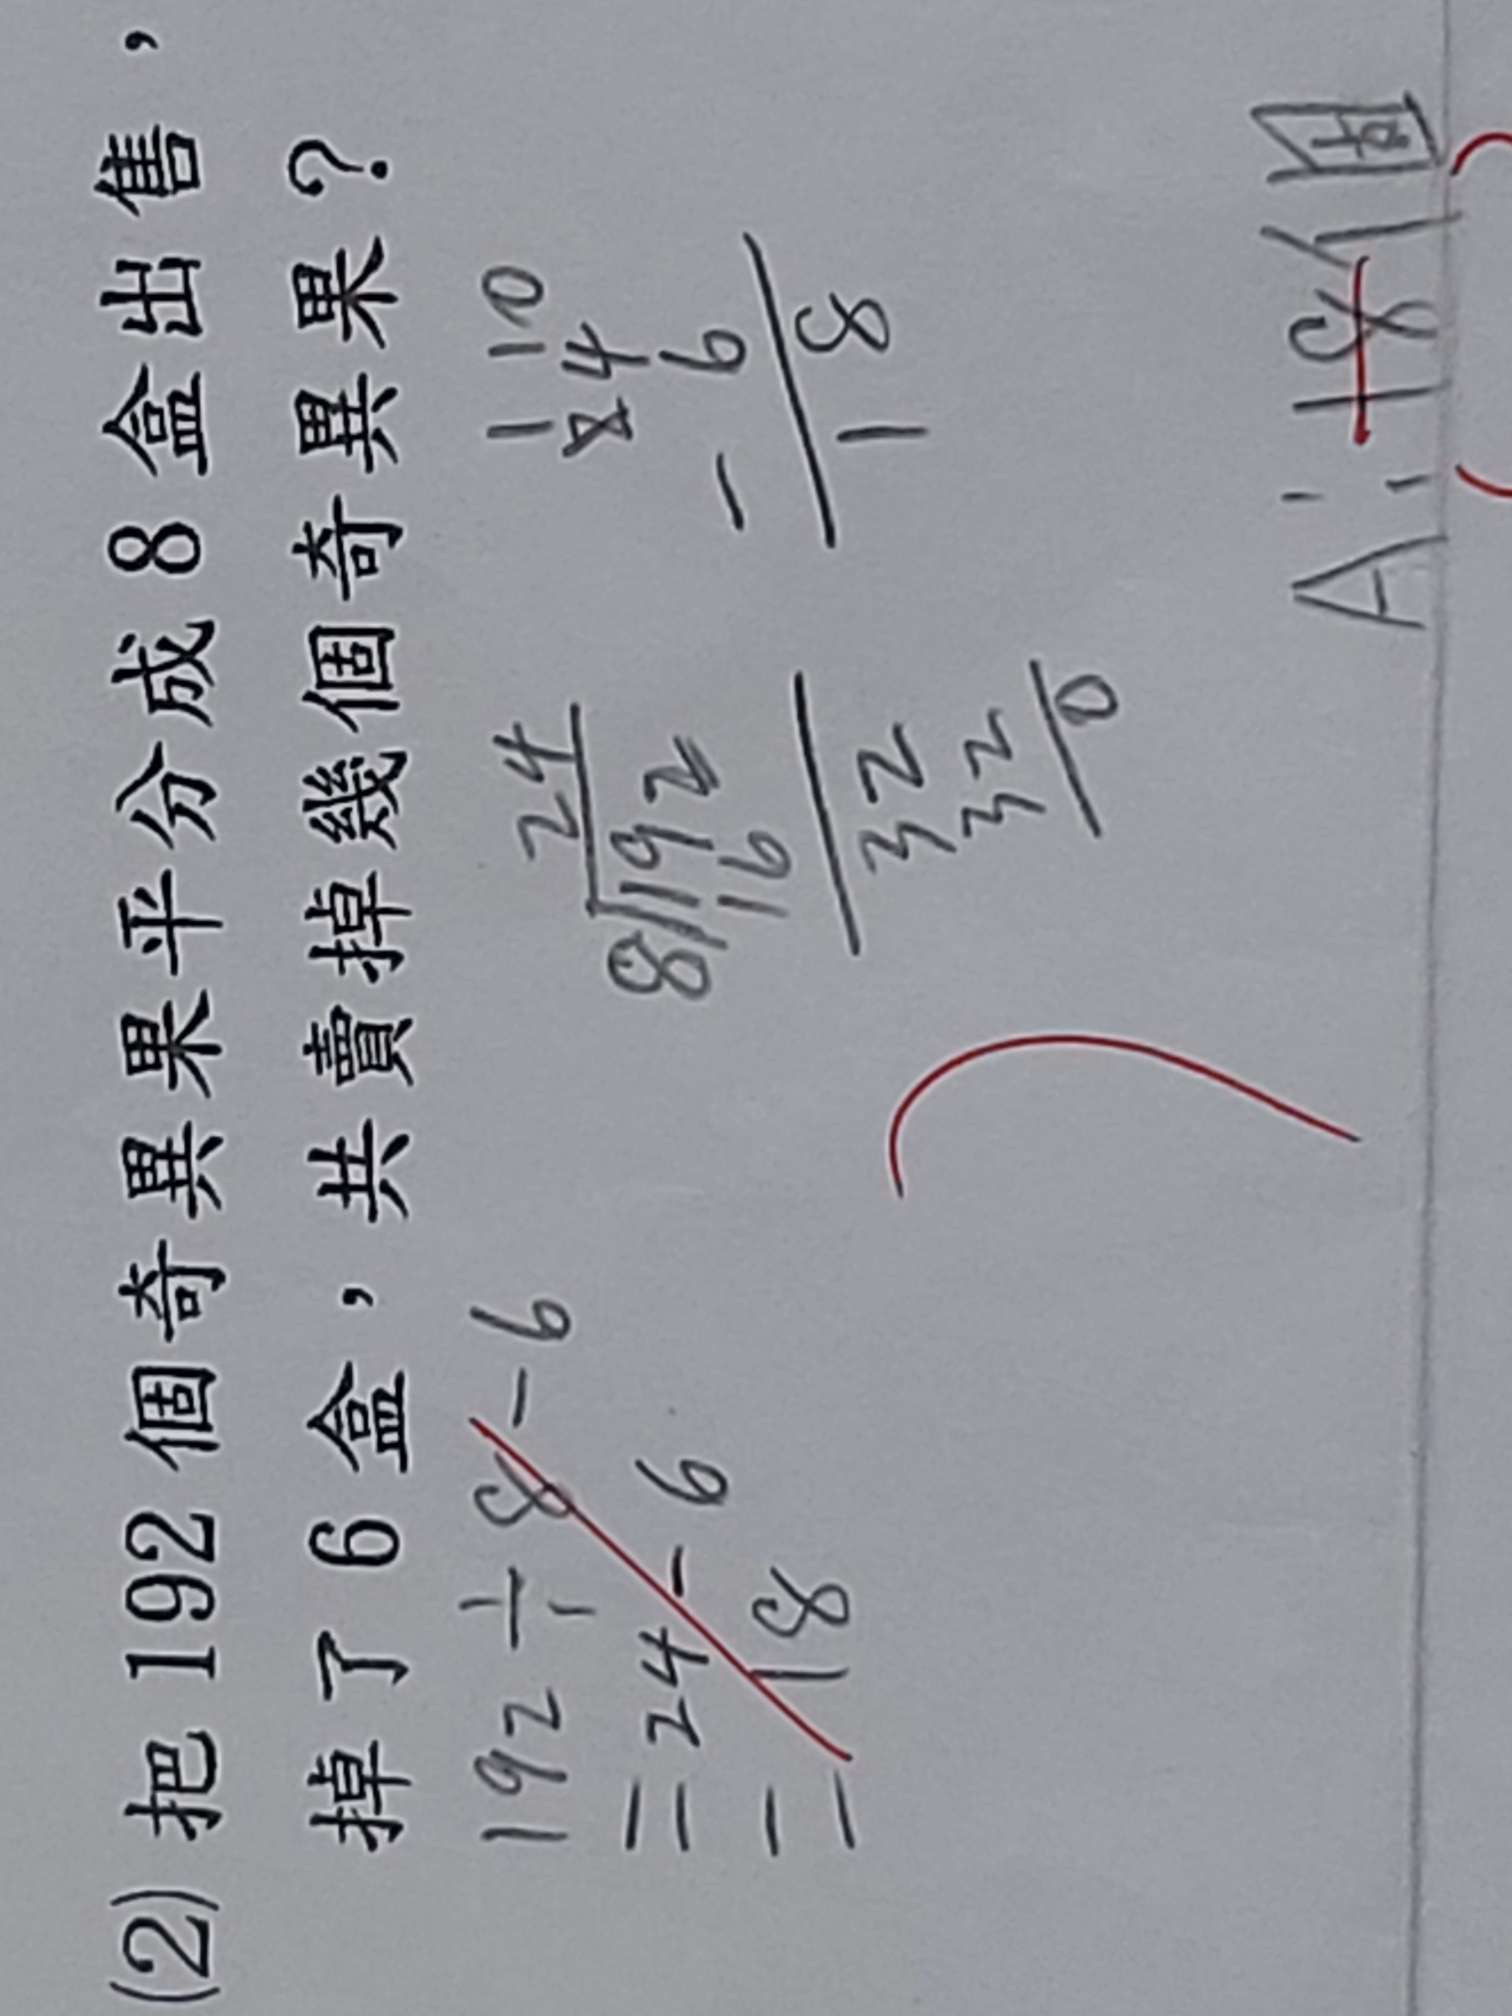 (2) 把 192 個奇異果平分成 8 盒出售，
掉了 6 盒，共賣掉幾個奇異果？
192÷8-6
=24-6
=18
24
8192
16
32
32
0
110
84
- 6
18
A：18個